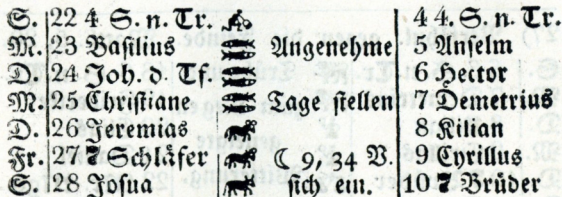 S. 22 4. S. n. Tr. 4 4. S. n. Tr.
M. 23 Basilius Angenehme 5 Anselm
D. 24 Joh. d. Tf. 6 Hector
M. 25 Christiane Tage stellen 7 Demetrius
D. 26 Jeremias 8 Kilian
Fr. 27 7 Schläfer ☾ 9, 34 V. 9 Cyrillus
S. 28 Josua sich ein. 10 7 Brüder